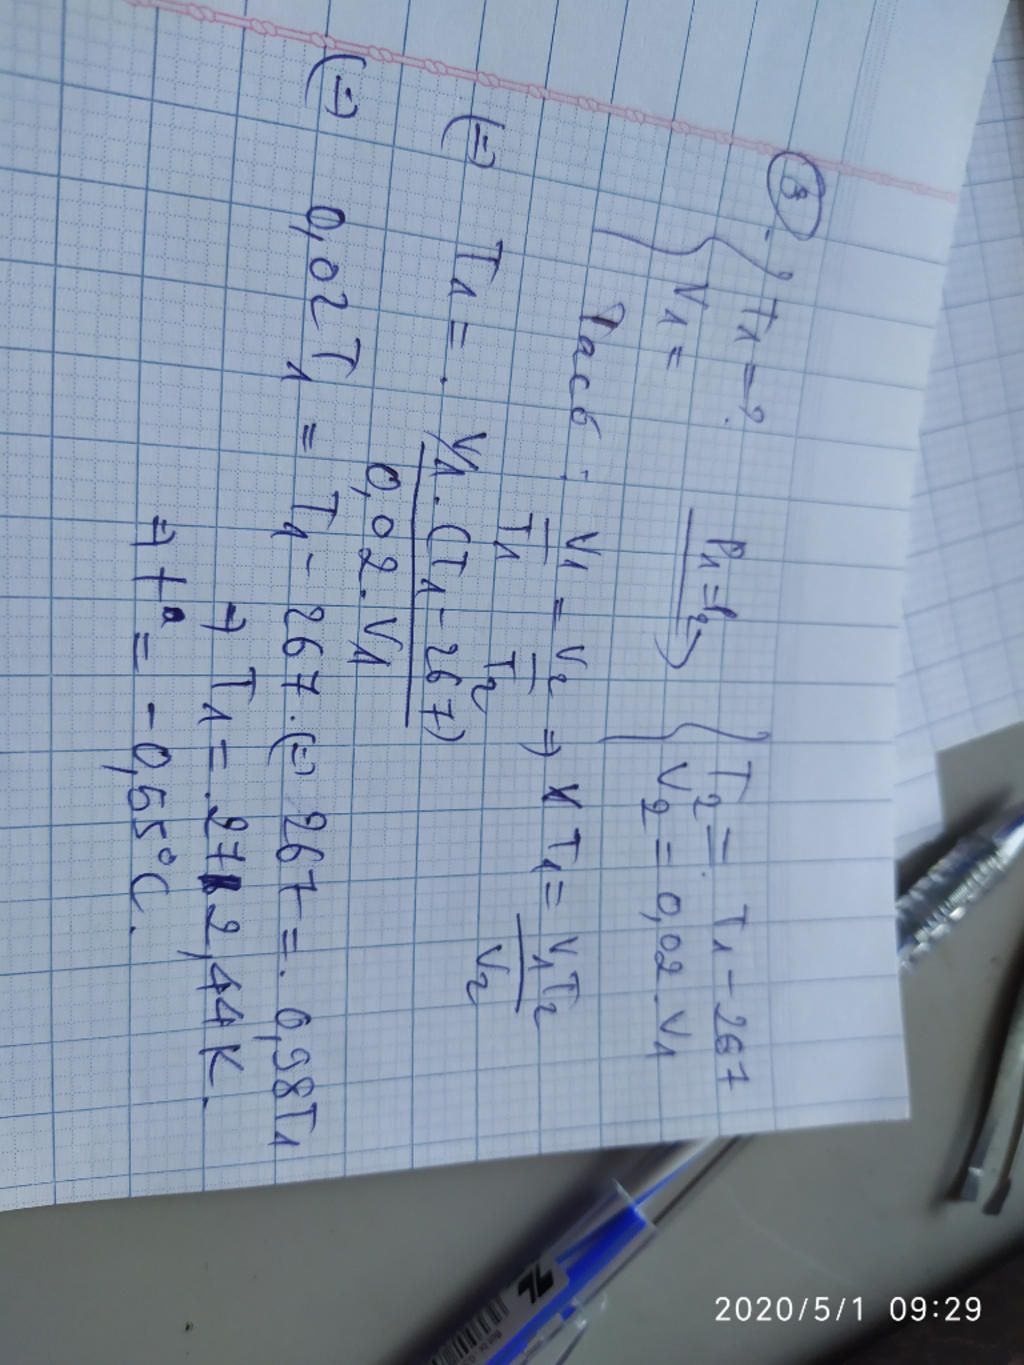 ③ . { T₁ = ? P₁ = P₂ → { T₂ = T₁ - 267
V₁ = V₂ = 0,02 . V₁
Tacó : V₁/T₁ = V₂/T₂ ⇒ T₁ = V₁T₂/V₂
(=) T₁ = . V₁ . (T₁ - 267) / 0,02 . V₁
(=) 0,02T₁ = T₁ - 267 . (=) 267 = . 0,98T₁
⇒ T₁ = . 272,44 K .
⇒ t° = - 0,55°C .
2020/5/1 09:29